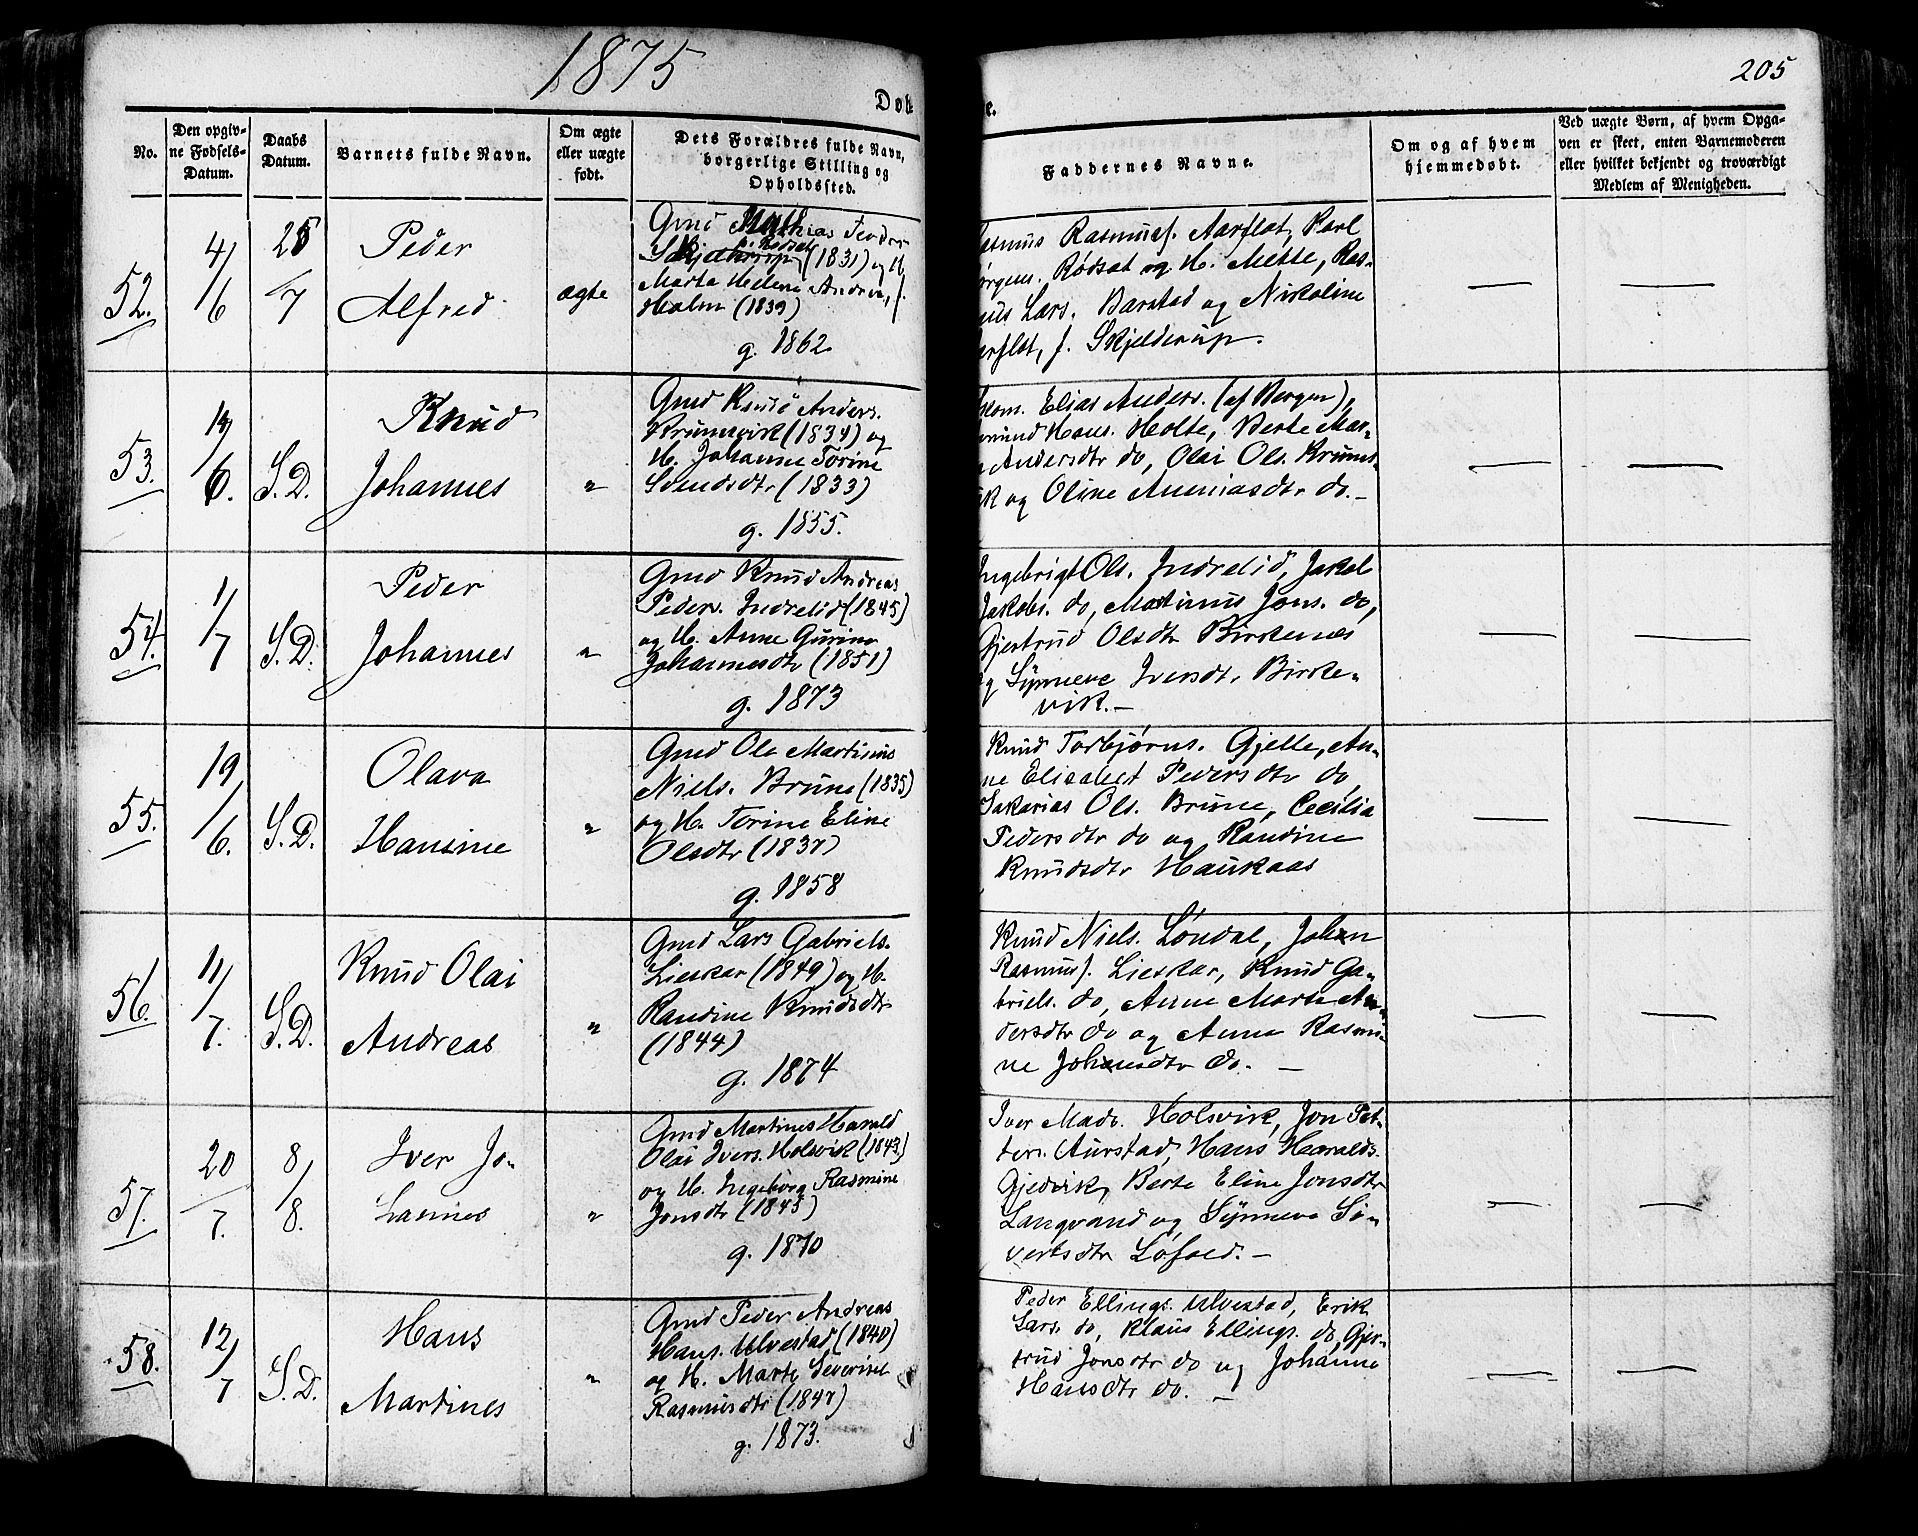 1875
205
Døb
te.
No.
Den opgiv-
ne Fødsels-
Datum.
Daabs
Datum.
Barnets fulde Navn.
Om ægte
eller uægte
født.
Dets Forældres fulde Navn,
borgerlige Stilling og
Opholdssted.
Faddernes Navne.
Om og af hvem
hjemmedøbt.
Ved uægte Børn, af hvem Opga-
ven er skeet, enten Barnemoderen
eller hvilket bekjendt og troværdigt
Medlem af Menigheden.
52.
4/6
25/7
Peder
Alfred
ægte
Gmd Mathias Feder
Skjelderup Rødsæt (1831) og H.
Marta Helene Andrea, f.
Holm (1839)
g. 1862
Rasmus Rasmuss. Aarflot, Karl
Jørgens. Rødsæt og H. Mette, Ras-
mus Lars. Barstad og Nikoline
Aarflot, f. Skjelderup.
—
—
53.
13/6.
S.D.
Knud
Johannes
"
Gmd Knud Anders.
Krumsvik (1834) og
H. Johanne Torine
Svendsdtr (1833)
g. 1855.
Skom. Elias Anders. (af Bergen),
Hans. Holte, Berte Mar-
Andersdtr do, Olai Ols. Krums-
vik og Oline Ananiasdtr do. —
—
—
54.
1/7
S.D.
Peder
Johannes
"
Gmd Knud Andreas
Peders. Indrelid (1845)
og H. Anne Gurine
Johannesdtr (1851)
g. 1873
Ingebrigt Ols. Indrelid, Jakob
Jakobs. do, Martinus Jons. do,
Gjertrud Olsdtr Birkenes
og Synneve Iversdtr Birke-
vik. —
—
—
55.
19/6.
S.D.
Olava
Hansine
"
Gmd Ole Martinus
Niels. Brune (1835)
og H. Torine Eline
Olsdtr (1837)
g. 1858
Knud Torbjørns. Gjelle, An-
ne Elisabet Pedersdtr do
Sakarias Ols. Brune, Cecilia
Pedersdtr do og Randine
Knudsdtr Haukaas
—
—
56.
11/7.
S.D.
Knud Olai
Andreas
"
Gmd Lars Gabriels.
Lieskar (1849) og H.
Randine Knudsdtr
(1844)
g. 1874
Knud Niels. Løndal, Johan
Rasmuss. Lieskar, Knud Ga-
briels. do, Anne Marte An-
dersdtr do og Anne Rasmi-
ne Johansdtr do. —
—
—
57.
20/7.
8/8.
Iver Jo-
hannes
"
Gmd Martines Harald
Olai Ivers. Holsvik (1843)
og H. Ingeborg Rasmine
Jonsdtr (1845)
g. 1870
Iver Mads. Holsvik, Jon Pet-
ters. Aurstad, Hans Haralds.
Gjedvik, Berte Eline Jonsdtr
Langvand og Synneve Si-
vertsdtr Løfoed. —
—
—
58.
12/7
S.D.
Hans
Martines
"
Gmd Peder Andreas
Hans. Ulvestad (1840)
og H. Marte Severine
Rasmusdtr (1847)
g. 1873.
Peder Ellings. Ulvestad, Erik
Lars. do, Klaus Ellings. do, Gjer-
trud Jonsdtr do og Johanne
Hansdtr do. —
—
—